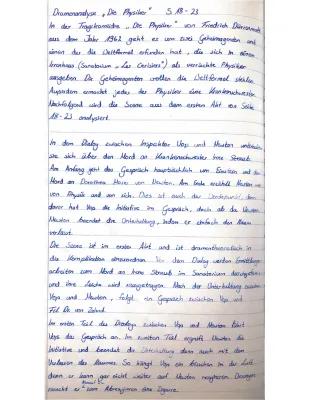 Dramenanalyse „Die Physiker" S. 18-23
In der Tragikomödie „Die Physiker" von Friedrich Dürrenmatt
aus dem Jahr 1962 geht es um zwei Geheimagenten und
einen der die Weltformel erfunden hat, die sich in einem
Irrenhaus (Sanatorium „Les Cerisiers") als verrückte Physiker
ausgeben. Die Geheimagenten wollen die Weltformel stehlen.
Ausserdem ermordet jeder der Physiker eine Krankenschwester.
Nachfolgend wird die Szene aus dem ersten Akt von Seite
18-23 analysiert.
In dem Dialog zwischen Inspektor Voß und Newton unterhalten
sie sich über den Mord an Krankenschwester Irene Straub.
Am Anfang geht das Gespräch hauptsächlich um Einstein und den
Mord an Dorothea Moser von Newton. Am Ende erzählt Newton
von Physik und von sich. Dies ist auch der Wendepunkt, denn
davor hat Voß die Initiative im Gespräch, doch ab da
Newton beendet die Unterhaltung, indem er einfach den Raum
verlässt.
Die Szene ist im ersten Akt und ist dramentheoretisch in
die Komplikation einzuordnen. Vor dem Dialog werden Ermittlungs-
arbeiten zum Mord an Irene Straub im Sanatorium durchgeführt
und ihre Leiche wird weggetragen. Nach der Unterhaltung zwischen
Voß und Newton, folgt ein Gespräch zwischen Voß und
Frl. Dr. von Zahnd.
Im ersten Teil des Dialogs zwischen Voß und Newton führt
Voß das Gespräch an. Im zweiten Teil ergreift Newton die
Initiative und beendet die Unterhaltung dann auch mit dem
Verlassen des Raumes. So hängt Voß ein bisschen in der Luft
denn er kann gar nicht weiter auf Newton reagieren. Deswegen
raucht er zum Abreagieren eine Zigarre.